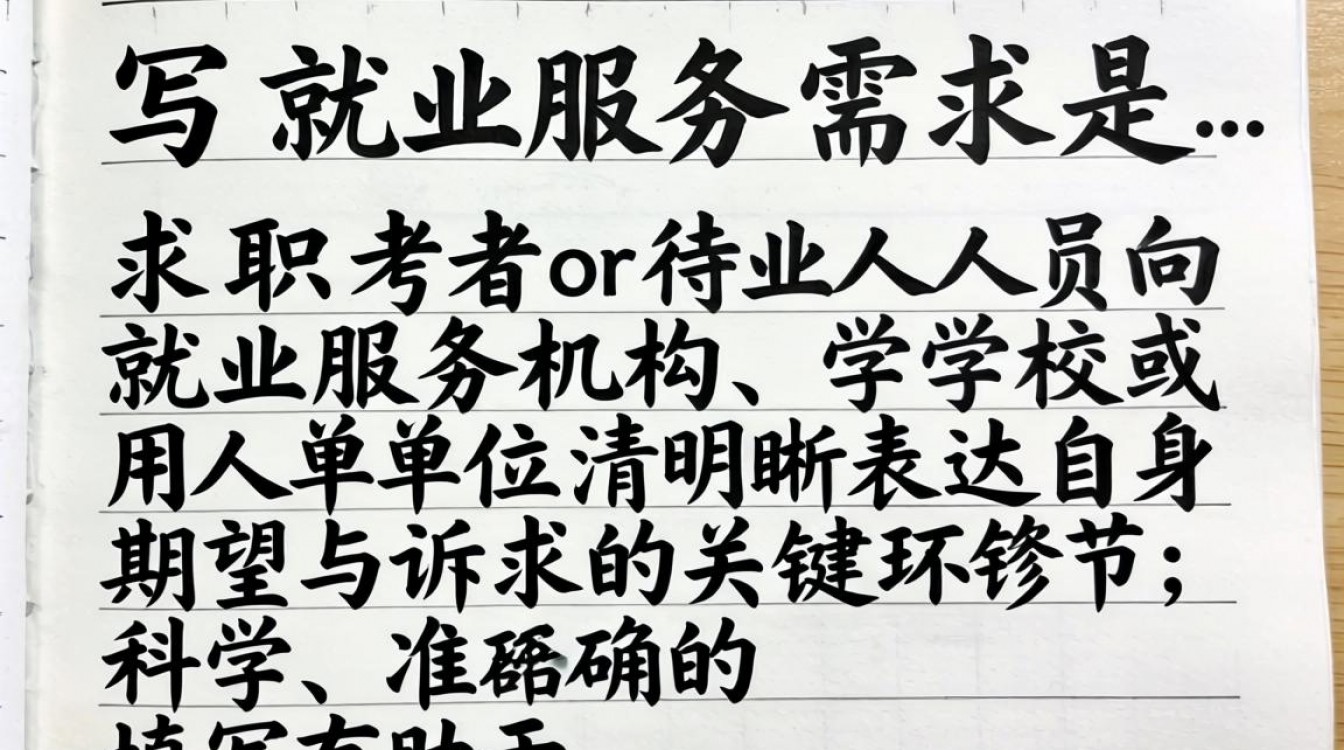 写就业服务需求是…
求职考者or待业人人员向
就业服务机构、学学校或
用人单单位清明晰表达自身
期望与诉求的关键环锋节；
科学、准确的
填写有助于